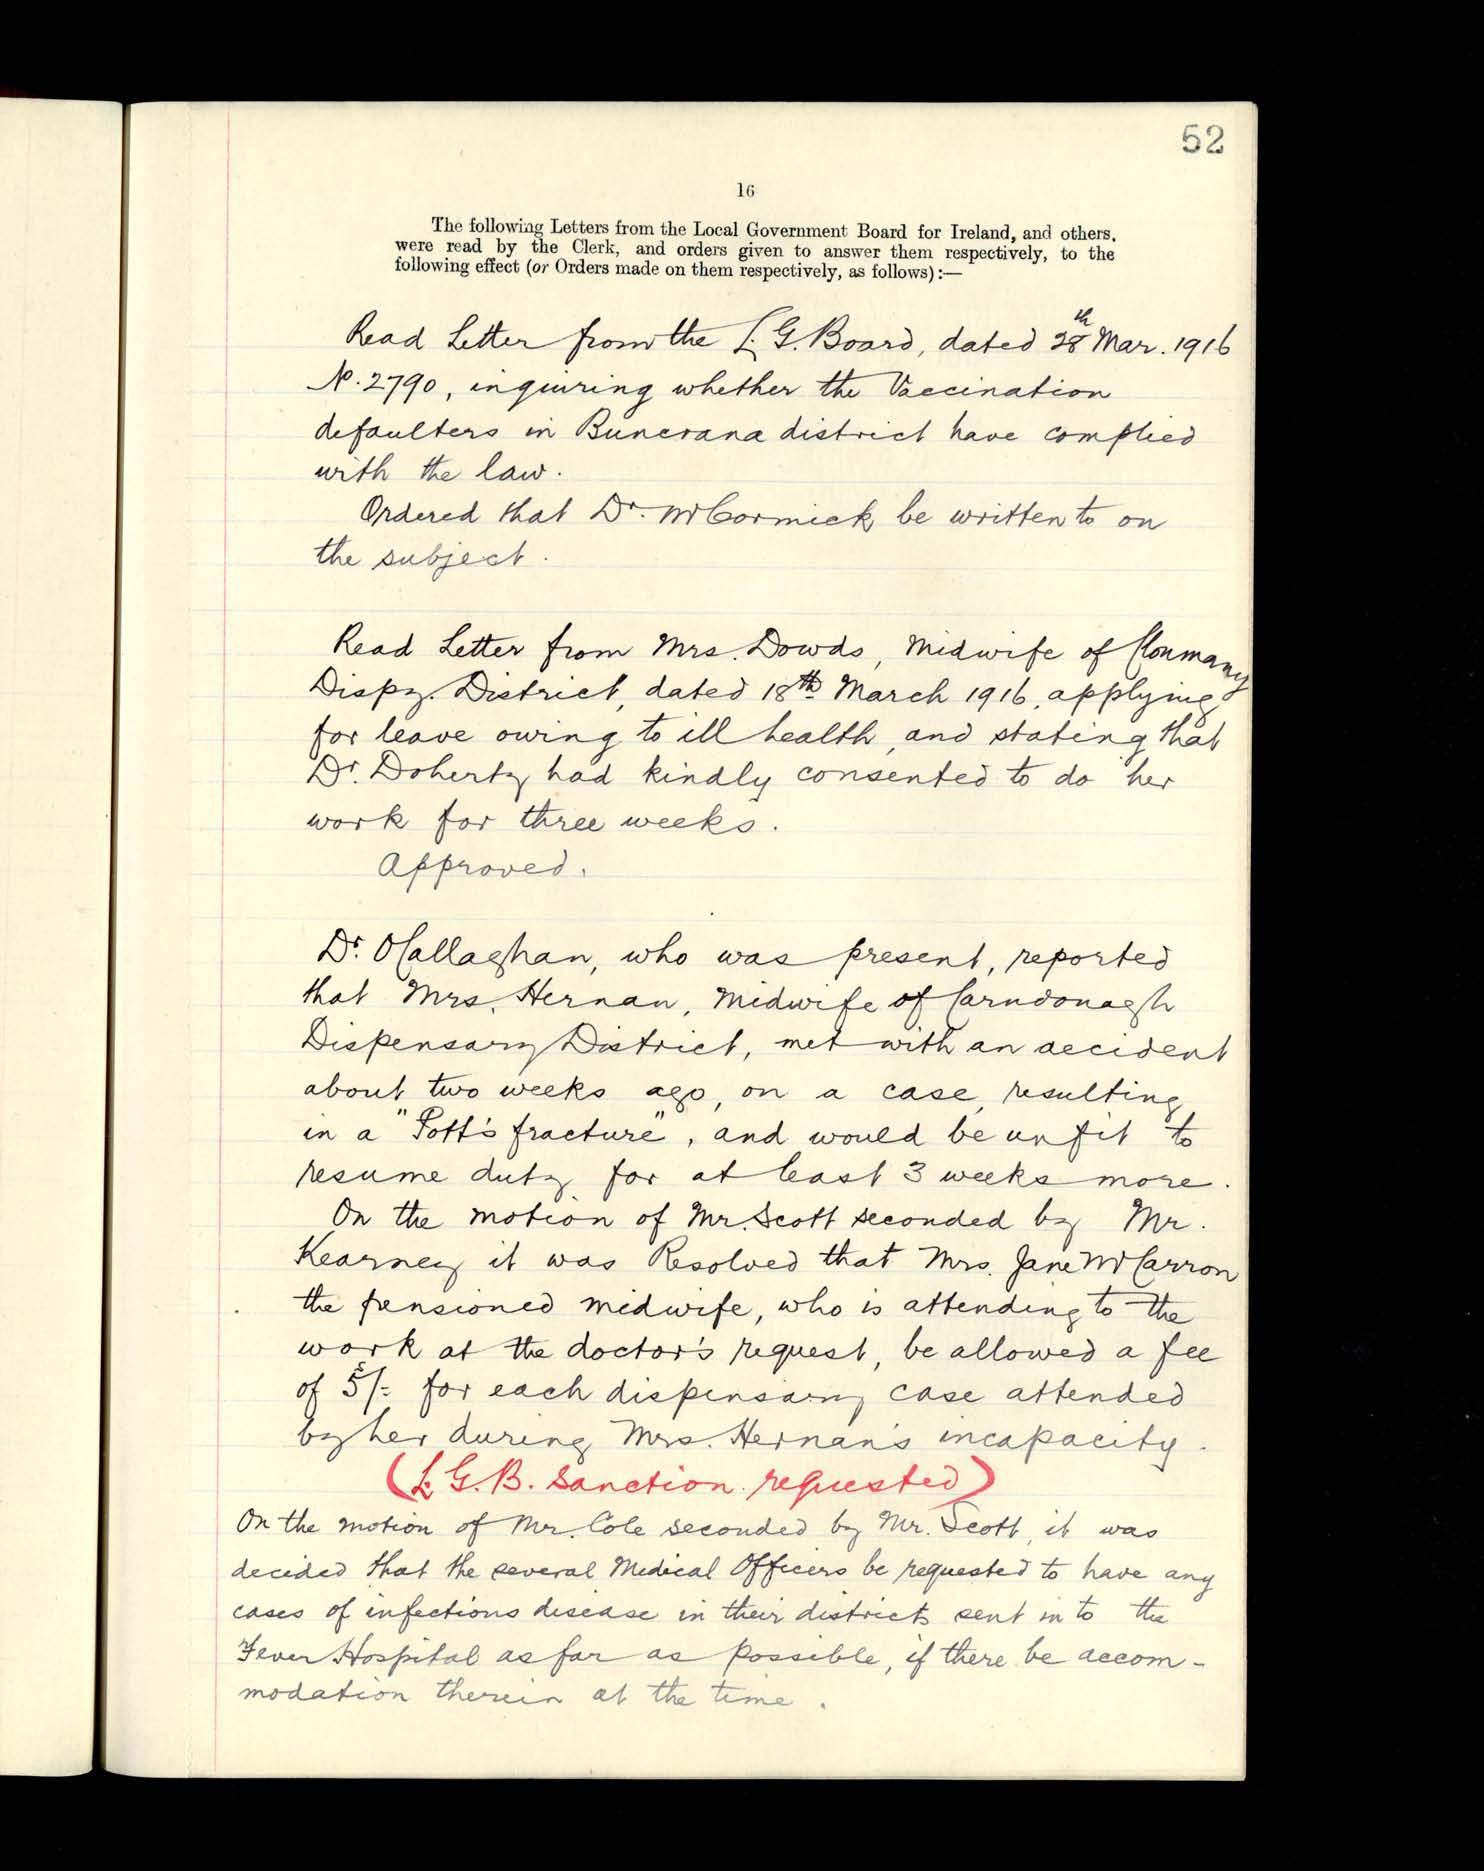 52
16
The following Letters from the Local Government Board for Ireland, and others,
were read by the Clerk, and orders given to answer them respectively, to the
following effect (or Orders made on them respectively, as follows):—
Read Letter from the L. G. Board, dated 28th Mar. 1916
No. 2790, inquiring whether the Vaccination
defaulters in Buncrana district have complied
with the law.
Ordered that Dr. McCormick be written to on
the subject.
Read Letter from Mrs. Dowds, Midwife of Clonmany
Dispy. District, dated 18th March 1916, applying
for leave owing to ill health, and stating that
Dr. Doherty had kindly consented to do her
work for three weeks.
Approved.
Dr. O'Callaghan, who was present, reported
that Mrs. Hernan, Midwife of Carndonagh
Dispensary District, met with an accident
about two weeks ago, on a case, resulting
in a "Pott's fracture", and would be unfit to
resume duty for at least 3 weeks more.
On the motion of Mr. Scott seconded by Mr.
Kearney it was Resolved that Mrs. Jane McCarron
the pensioned midwife, who is attending to the
work at the doctor's request, be allowed a fee
of 5s/- for each dispensary case attended
by her during Mrs. Hernan's incapacity.
(L. G. B. Sanction requested)
On the motion of Mr. Cole seconded by Mr. Scott, it was
decided that the several Medical Officers be requested to have any
cases of infectious disease in their districts sent in to the
Fever Hospital as far as possible, if there be accom-
modation therein at the time.